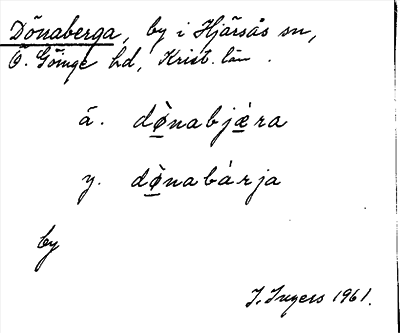 Dönaberga, by i Hjärsås sn,
Ö. Göinge hd, Krist. län.
ä. dø̀nabjǽra
y. dø̀nabárja
by
I. Ingers 1961.